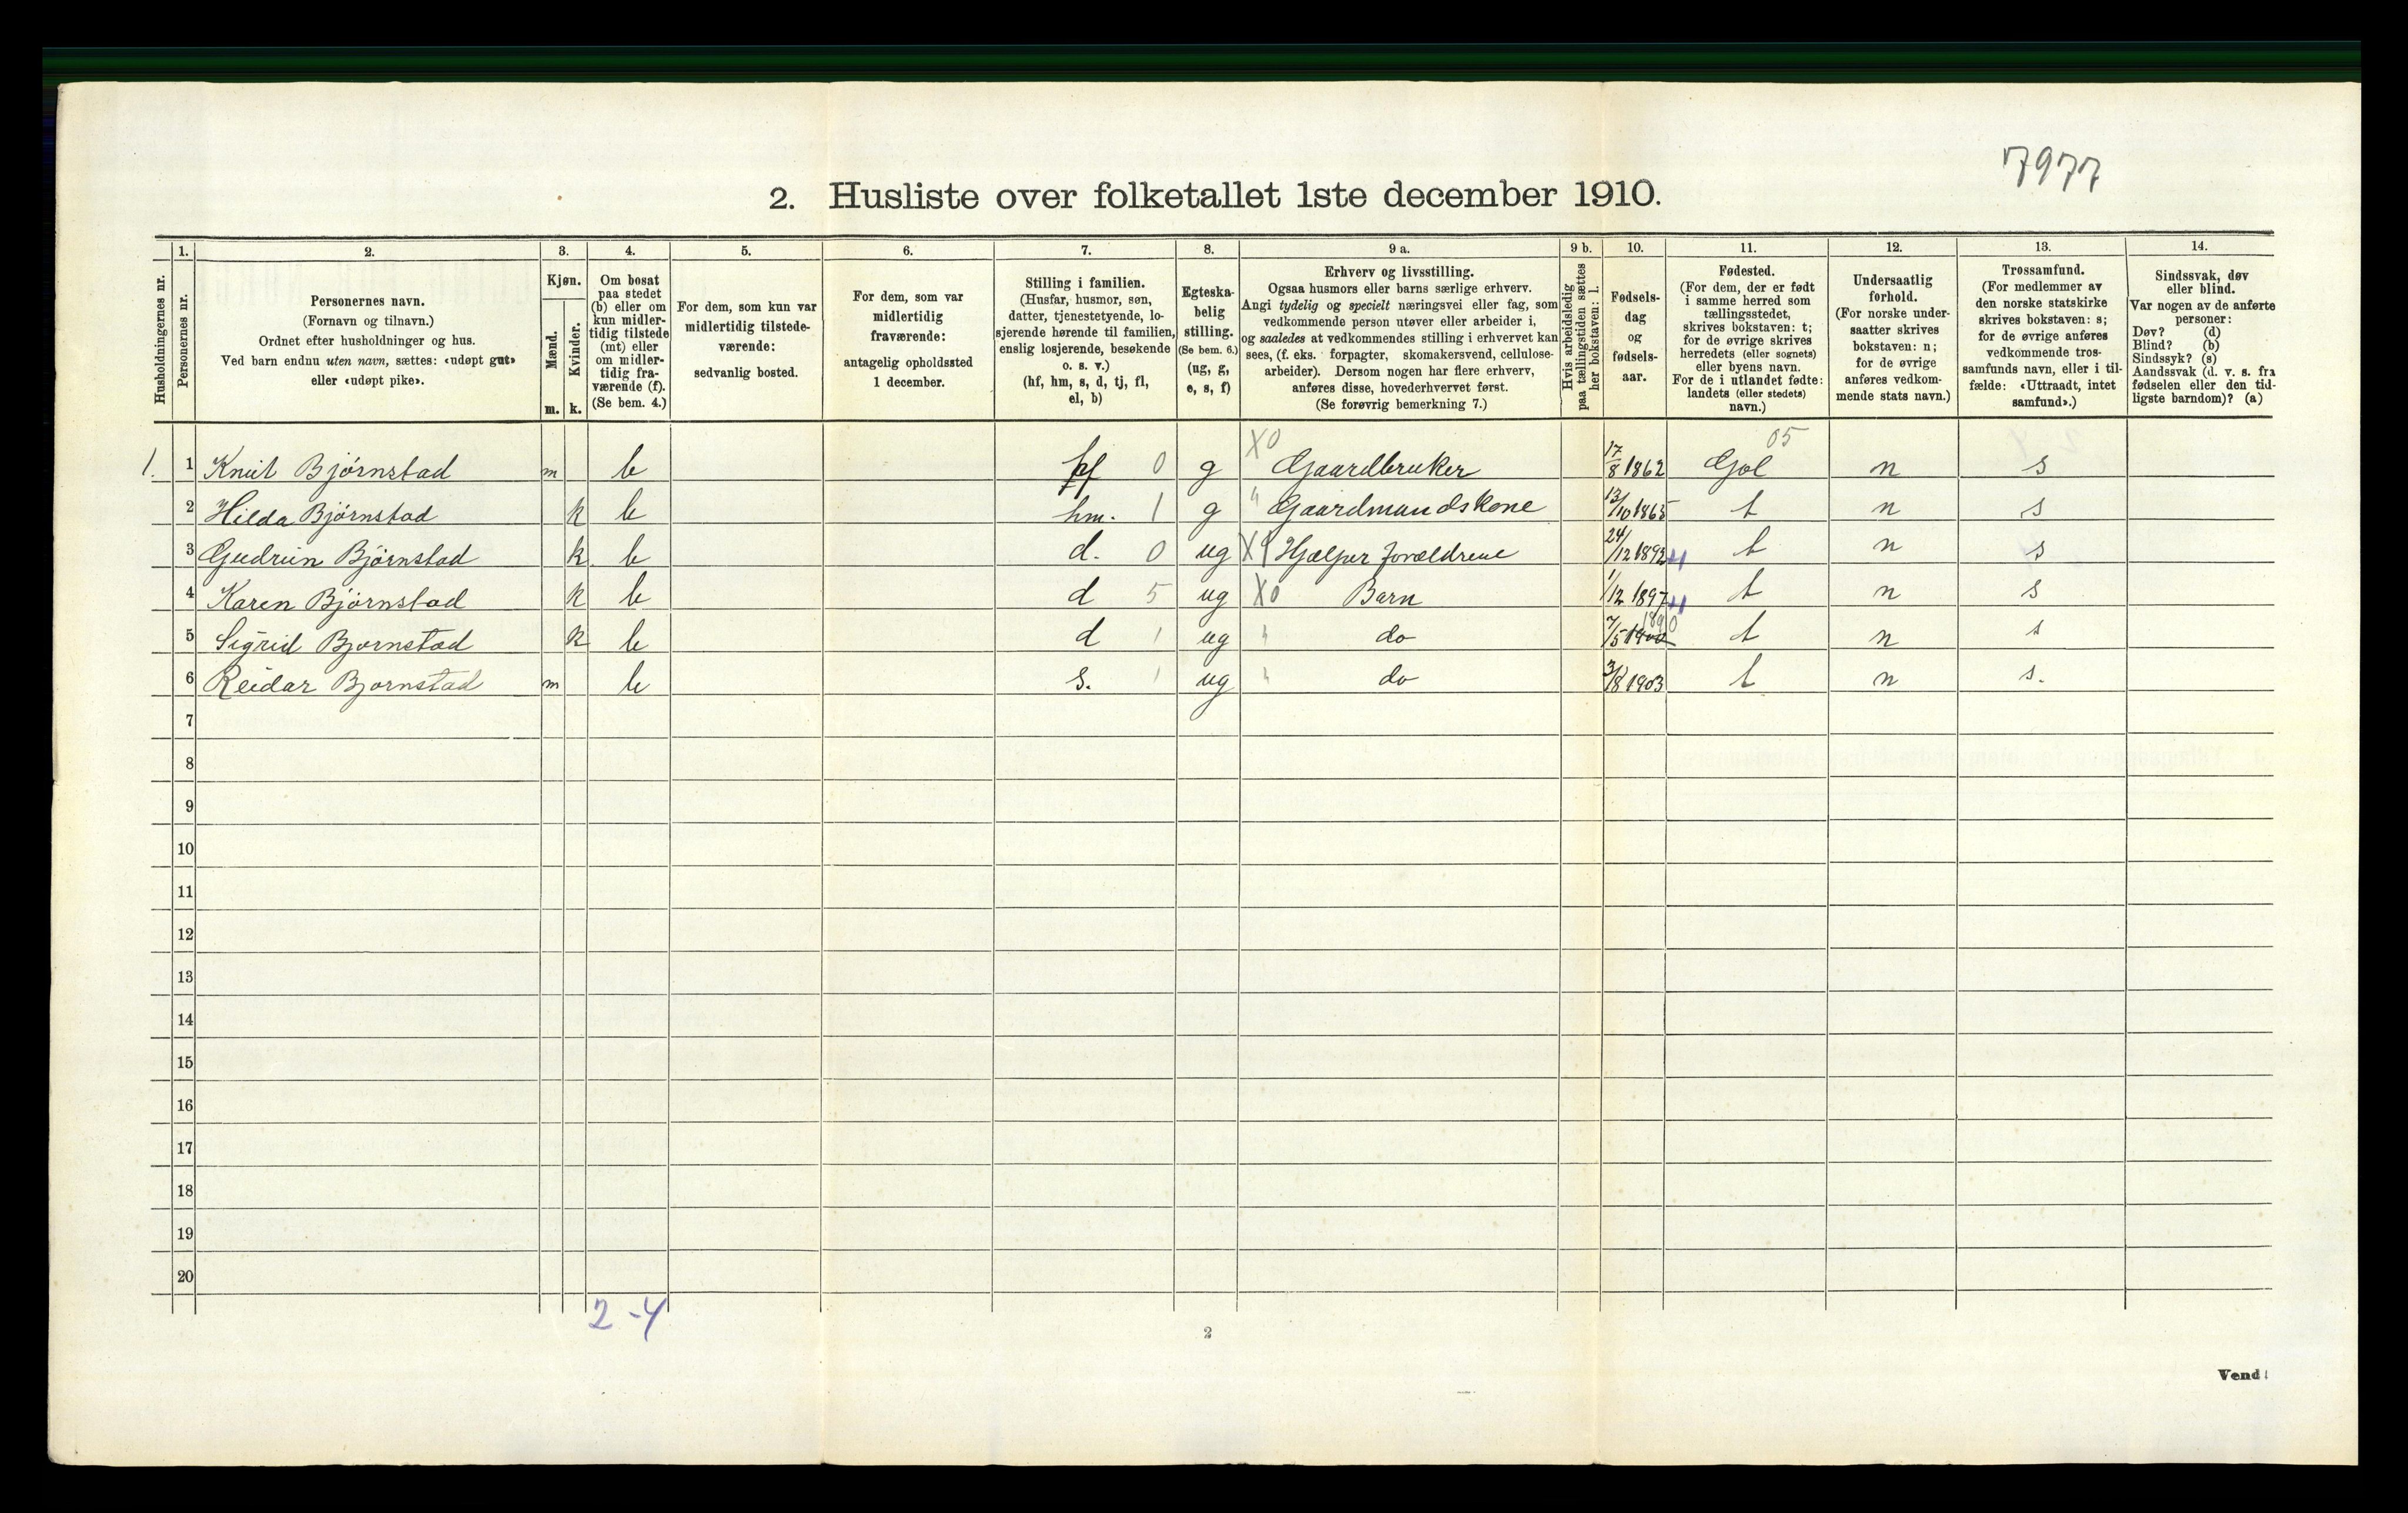 7977
2. Husliste over folketallet 1ste december 1910.
Husholdningernes nr.
1.
Personernes nr.
2.
Personernes navn.
(Fornavn og tilnavn.)
Ordnet efter husholdninger og hus.
Ved barn endnu uten navn, sættes: «udøpt gut»
eller «udøpt pike».
3.
Kjøn.
Mænd.
Kvinder.
m. k.
4.
Om bosat
paa stedet
(b) eller om
kun midler-
tidig tilstede
(mt) eller
om midler-
tidig fra-
værende (f).
(Se bem. 4.)
5.
For dem, som kun var
midlertidig tilstede-
værende:
sedvanlig bosted.
6.
For dem, som var
midlertidig
fraværende:
antagelig opholdssted
1 december.
7.
Stilling i familien.
(Husfar, husmor, søn,
datter, tjenestetyende, lo-
sjerende hørende til familien,
enslig losjerende, besøkende
o. s. v.)
(hf, hm, s, d, tj, fl,
el, b)
8.
Egteska-
belig
stilling.
(Se bem. 6.)
(ug, g,
e, s, f)
9 a.
Erhverv og livsstilling.
Ogsaa husmors eller barns særlige erhverv.
Angi tydelig og specielt næringsvei eller fag, som
vedkommende person utøver eller arbeider i,
og saaledes at vedkommendes stilling i erhvervet kan
sees, (f. eks. forpagter, skomakersvend, cellulose-
arbeider). Dersom nogen har flere erhverv,
anføres disse, hovederhvervet først.
(Se forøvrig bemerkning 7.)
9 b.
Hvis arbeidsledig
paa tællingstiden sættes
her bokstaven: l.
10.
Fødsels-
dag
og
fødsels-
aar.
11.
Fødested.
(For dem, der er født
i samme herred som
tællingsstedet,
skrives bokstaven: t;
for de øvrige skrives
herredets (eller sognets)
eller byens navn.
For de i utlandet fødte:
landets (eller stedets)
navn.)
12.
Undersaatlig
forhold.
(For norske under-
saatter skrives
bokstaven: n;
for de øvrige
anføres vedkom-
mende stats navn.)
13.
Trossamfund.
(For medlemmer av
den norske statskirke
skrives bokstaven: s;
for de øvrige anføres
vedkommende tros-
samfunds navn, eller i til-
fælde: «Uttraadt, intet
samfund».)
14.
Sindssvak, døv
eller blind.
Var nogen av de anførte
personer:
Døv? (d)
Blind? (b)
Sindssyk? (s)
Aandssvak (d. v. s. fra
fødselen eller den tid-
ligste barndom)? (a)
05
1. 1 Knut Bjørnstad m b hf 0 g X0 Gaardbruker 17/8 1862 Gol n s
2 Hilda Bjørnstad k b hm. 1 g " Gaardmandskone 13/10 1865 t n s
3 Gudrun Bjørnstad k b d. 0 ug Hjælper forældrene 24/12 1892 t n s
4 Karen Bjørnstad k b d 5 ug X0 Barn 1/12 1897 t n s
5 Sigrid Bjørnstad k b d 1 ug " do 7/5 1900 t n s
6 Reidar Bjornstad m b s. 1 ug " do 3/8 1903 t n s.
7
8
9
10
11
12
13
14
15
16
17
18
19
20
2-4
2
Vend!